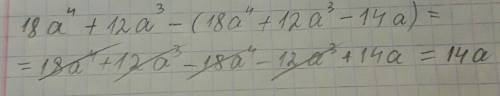 18a⁴ + 12a³ - (18a⁴ + 12a³ - 14a) =
= 18a⁴ + 12a³ - 18a⁴ - 12a³ + 14a = 14a